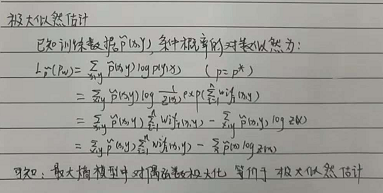 极大似然估计
已知训练数据p̃(x,y),条件概率的对数似然为:
L_p̃(P_w) = ∑_{x,y} p̃(x,y) log p(y|x) (p = p*)
= ∑_{x,y} p̃(x,y) log 1/Z(x) exp(∑_{i=1}^n w_i f_i(x,y))
= ∑_{x,y} p̃(x,y) ∑_{i=1}^n w_i f_i(x,y) - ∑_{x,y} p̃(x,y) log Z(x)
= ∑_{x,y} p̃(x,y) ∑_{i=1}^n w_i f_i(x,y) - ∑_x p̃(x) log Z(x)
可知:最大熵模型中对偶函数极大化 等价于 极大似然估计